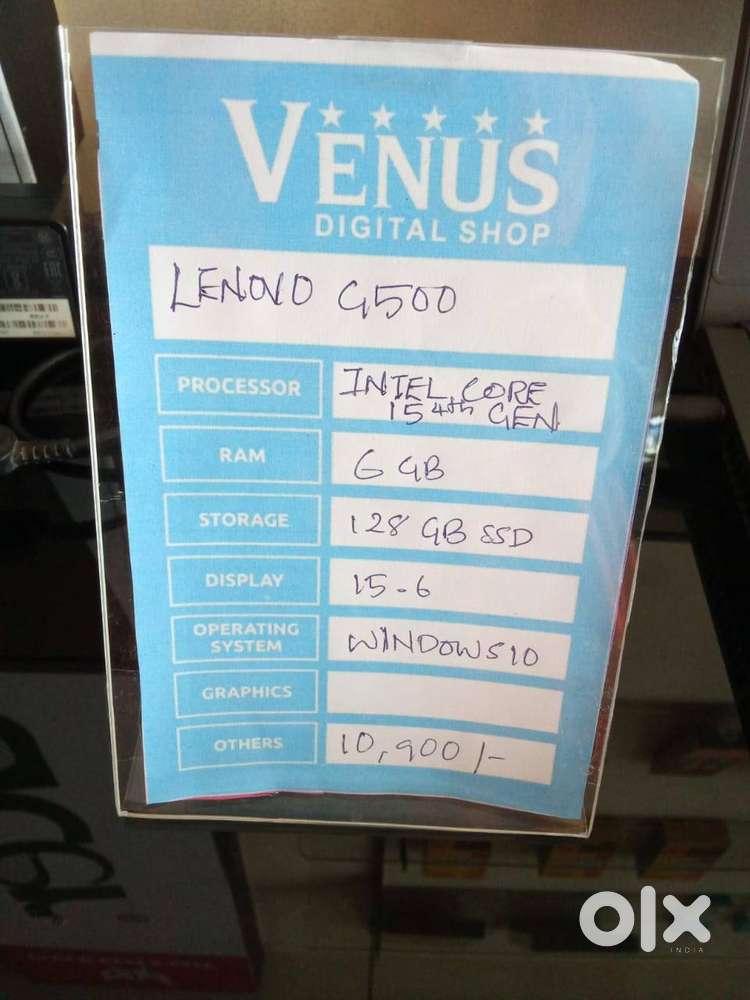 VENUS
DIGITAL SHOP
LENOVO G500
PROCESSOR
INTEL CORE
i5 4th GEN
RAM
6 GB
STORAGE
128 GB SSD
DISPLAY
15-6
OPERATING
SYSTEM
WINDOWS10
GRAPHICS
OTHERS
10,900/-
olx
INDIA